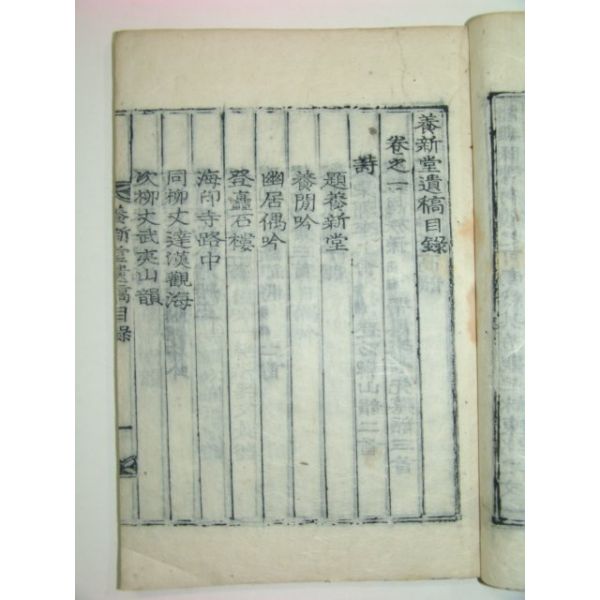 養新堂遺稿目錄
卷之一
詩
題養新堂
養閒吟
幽居偶吟
登矗石樓
海印寺路中
同柳丈達漢觀海
次柳丈武夷山韻
養新堂遺稿目錄
一